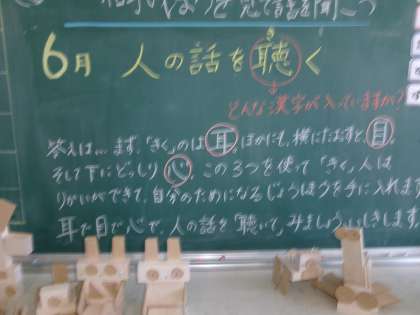 相手のほうを見て話を聞こう
6月 人の話を聴く
き
どんな漢字が入っていますか?
答えは…まず、「きく」のは耳。ほかにも、横にたおすと、目。
そして下にどっしり心。この3つを使って「きく」人は
りかいができて、自分のためになるじょうほうを手に入れます。
耳で目で心で、人の話を「聴いて」みましょう。